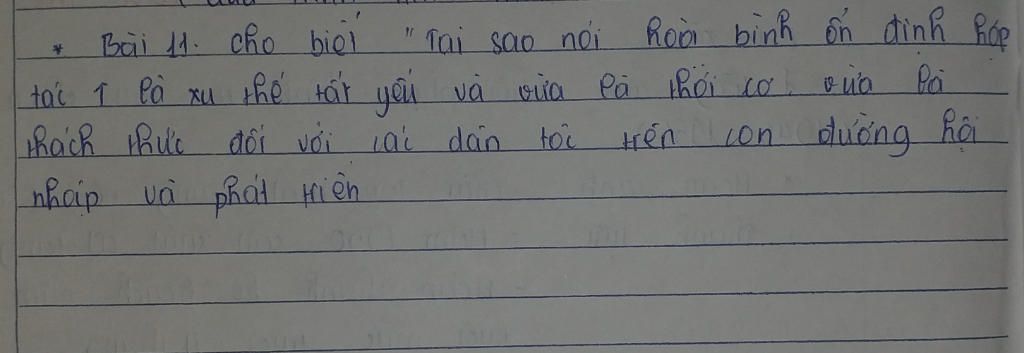 * Bài 11. Cho biết "Tại sao nói hoà bình ổn định hợp
tác ↑ là xu thế tất yếu và vừa là thời cơ, vừa là
thách thức đối với các dân tộc trên con đường hội
nhập và phát triển